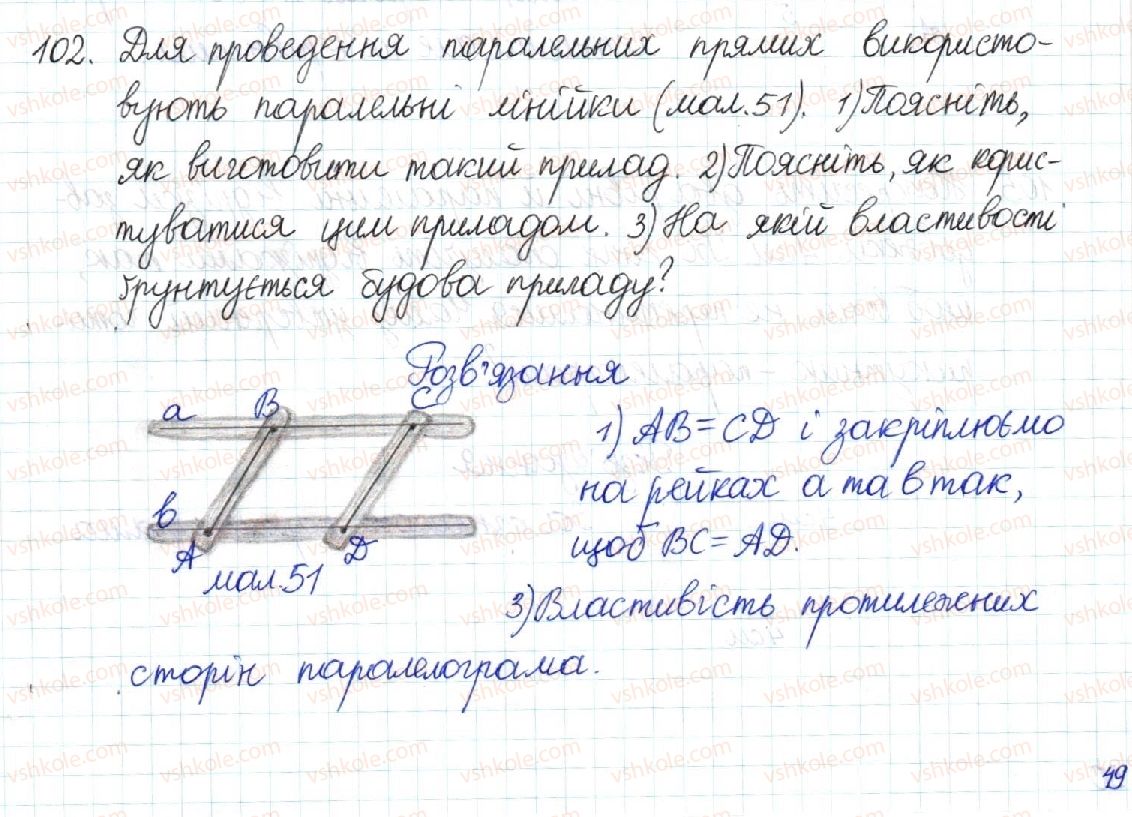 102. Для проведення паралельних прямих використо-
вують паралельні лінійки (мал.51). 1) Поясніть,
як виготовити такий прилад. 2) Поясніть, як корис-
туватися цим приладом. 3) На якій властивості
ґрунтується будова приладу?
Розв'язання
a B C
в
A D
мал.51
1) AB = CD і закріплюємо
на рейках a та в так,
щоб BC = AD.
3) Властивість протилежних
сторін паралелограма.
49